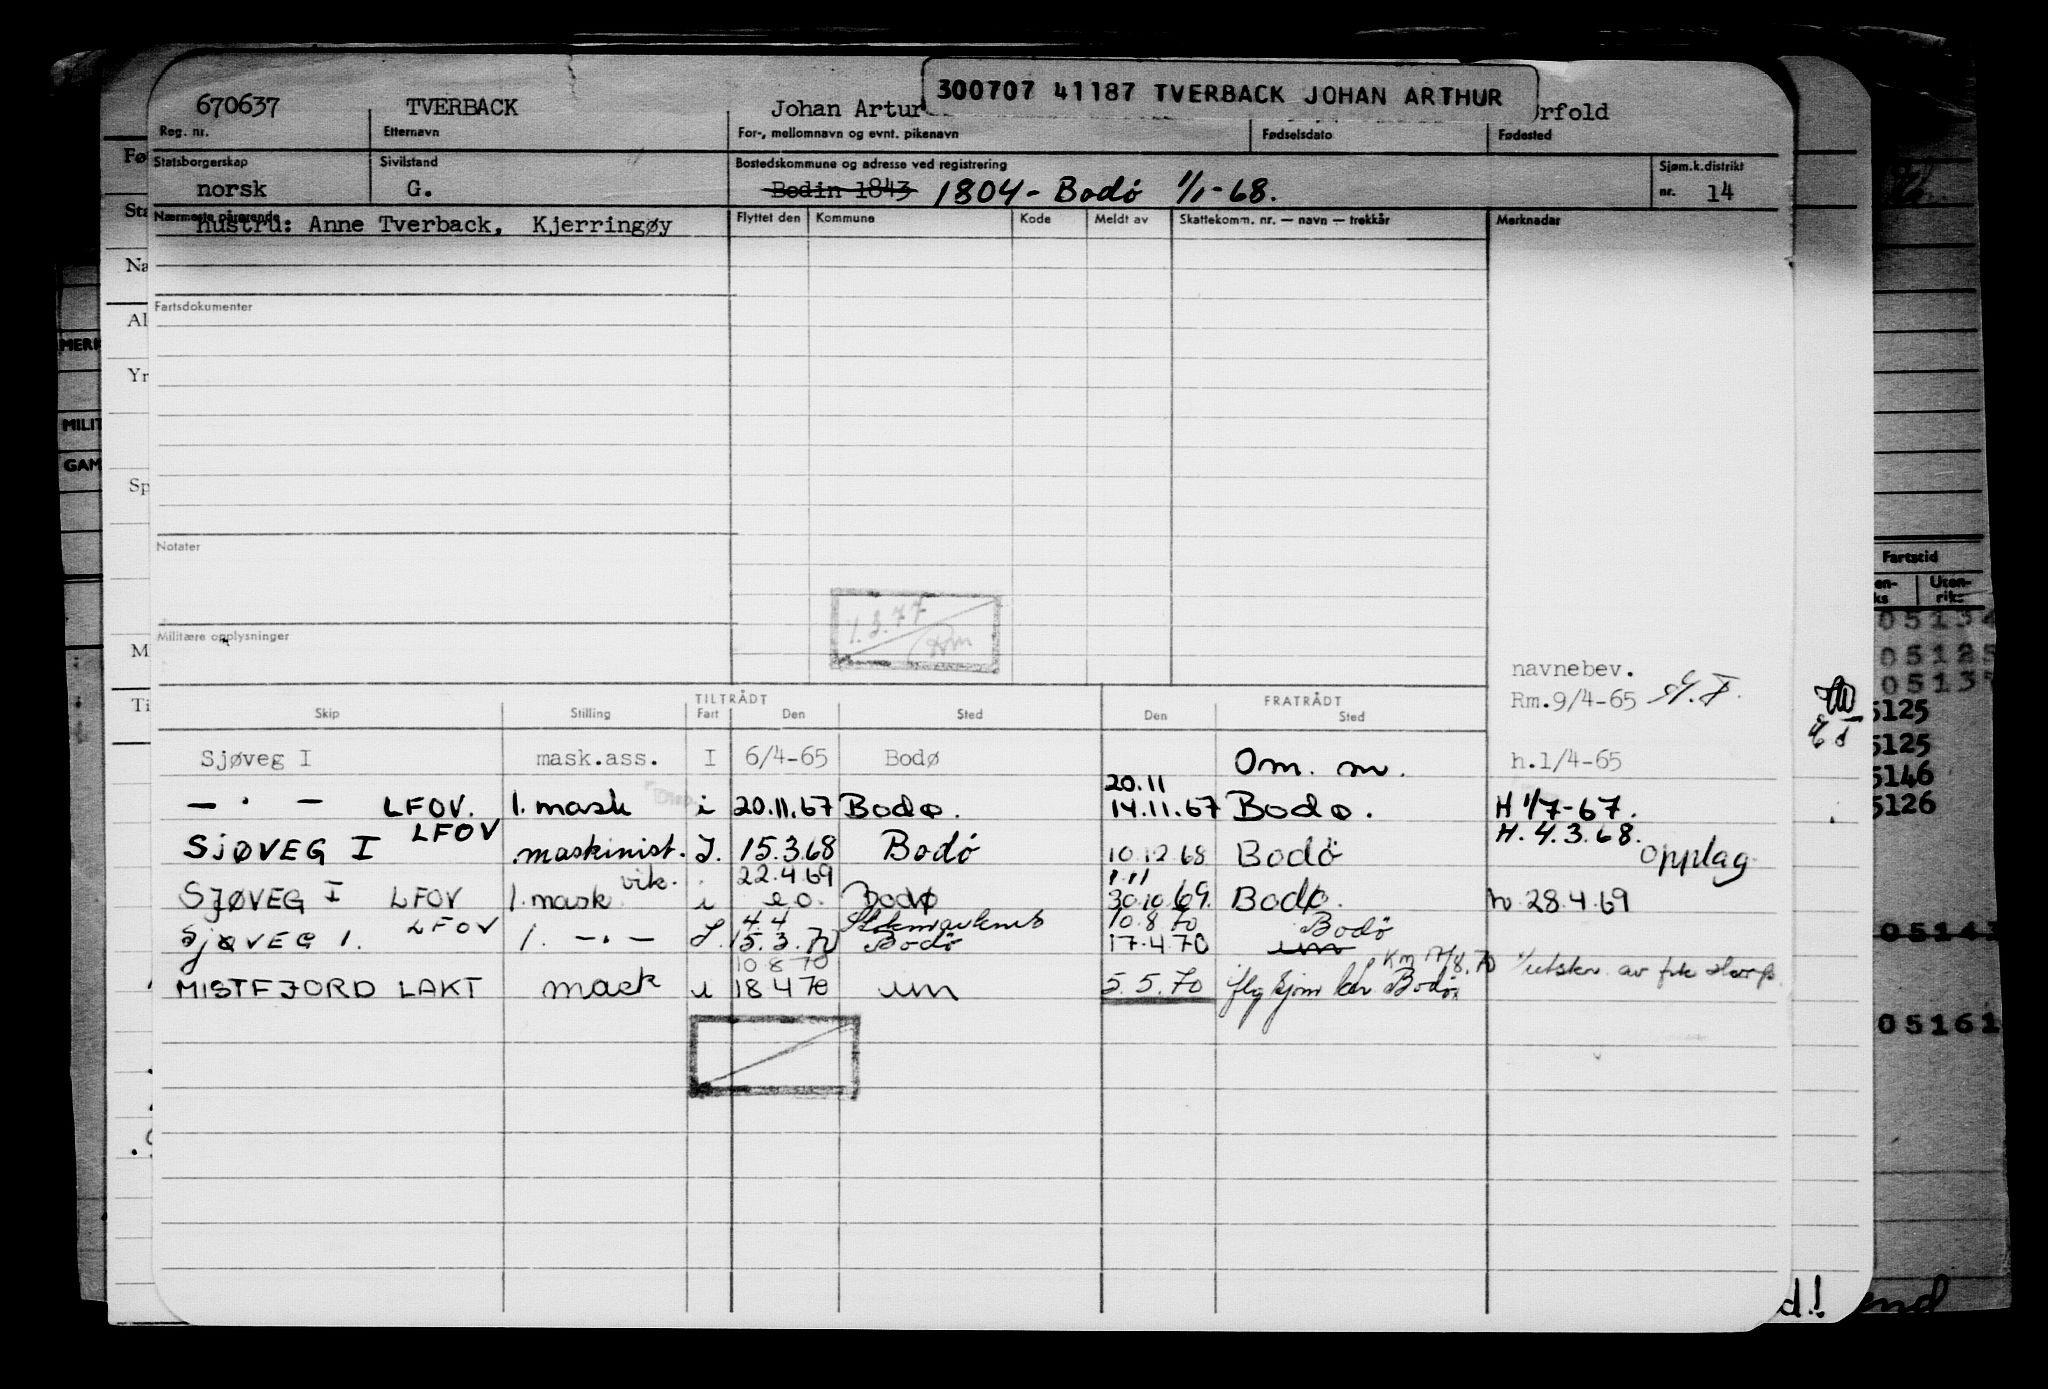 300707 41187 TVERBACK JOHAN ARTHUR
670637 TVERBACK Johan Artur rfold
Reg. nr. Etternavn For-, mellomnavn og evnt. pikenavn Fødselsdato Fødested
Statsborgerskap Sivilstand Bostedskommune og adresse ved registrering Sjøm.k.distrikt
norsk G. Bodin 1843 1804 - Bodø 1/1-68. nr. 14
Nærmeste pårørende Flyttet den Kommune Kode Meldt av Skattekomm. nr. — navn — trekkår Merknader
hustru: Anne Tverback, Kjerringøy
Fartsdokumenter
Notater
1.3.77
Militære opplysninger
navnebev.
Rm.9/4-65
TILTRÅDT FRATRÅDT
Skip Stilling Fart Den Sted Den Sted
Sjøveg I mask.ass. I 6/4-65 Bodø Om. m. h.1/4-65
20.11
— · — LFOV. 1. mask i 20.11.67 Bodø. 14.11.67 Bodø. H 1/7-67.
SJØVEG I LFOV maskinist. I. 15.3.68 Bodø 10.12.68 Bodø H. 4.3.68. Opplag
vik. 22.4.69 1.11
SJØVEG I LFOV 1. mask i e.o. Bodø 30.10.69. Bodø. h 28.4.69
LFOV 4.4 10.8.70 Bodø
SJØVEG I. 1. — · — I. 15.3.70 Bodø 17.4.70 um
10.8.70 Km 17/8.70
MISTFJORD LAKT mask u 18.4.70 um 5.5.70 Bodø
Fø
Sta
Na
Al
MERK
Yr
MILIT
GAM
Sp
M
Ti
Fartstid
Uten-
riks
05134
05125
05137
5125
5125
5146
5126
05143
05161
d!
end